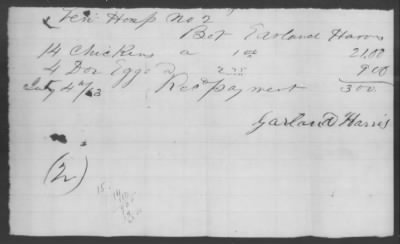 Gen Hosp No 2
Bot Garland Harris
14 Chickens a 1 50 21.00
4 Doz Eggs a 2.25 9 00
July 4th/63 Recd payment 300.
Garland Harris
(2)
15